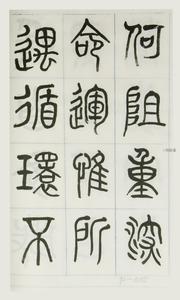 何阻重深
命運惟所
遇循環不